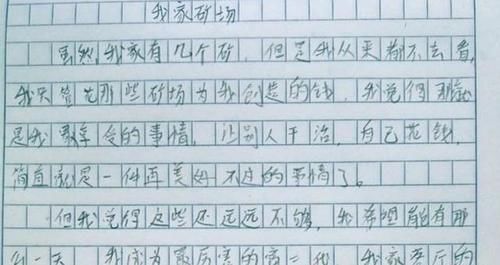 我家矿场
虽然,我家有几个矿,但是我从来都不去看,
我只管花那些矿场为我创造的钱,我觉得那就
是我最享受的事情,让别人干活,自己花钱,
简直就是一件再美好不过的事情了。
但我觉得这些还远远不够,我希望能有那
么一天,我成为最厉害的富二代,我家客厅的